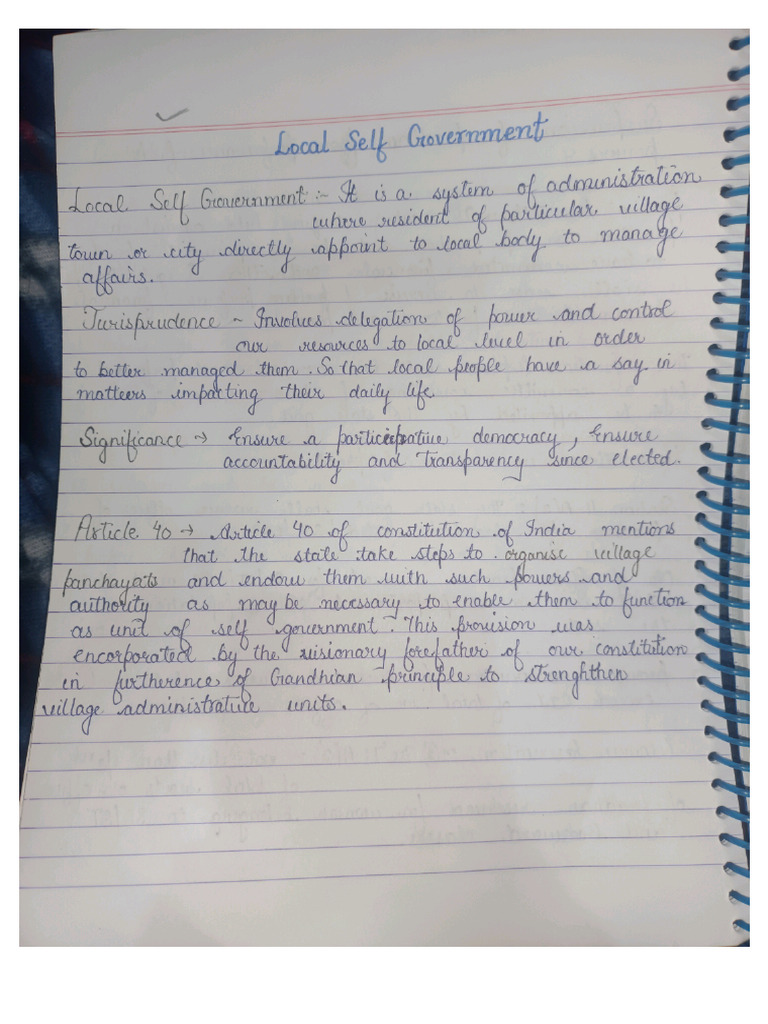 Local Self Government
Local Self Government :- It is a system of administration
where resident of particular village
town or city directly appoint to local body to manage
affairs.
Jurisprudence - Involves delegation of power and control
our resources to local level in order
to better managed them. So that local people have a say in
matteers impacting their daily life.
Significance → Ensure a participative democracy, Ensure
accountability and transparency since elected.
Article 40 → Article 40 of constitution of India mentions
that the state take steps to organise village
panchayats and endow them with such powers and
authority as may be necessary to enable them to function
as unit of self government. This provision was
encorporated by the visionary forefather of our constitution
in furtherence of Gandhian principle to strenghthen
village administrative units.